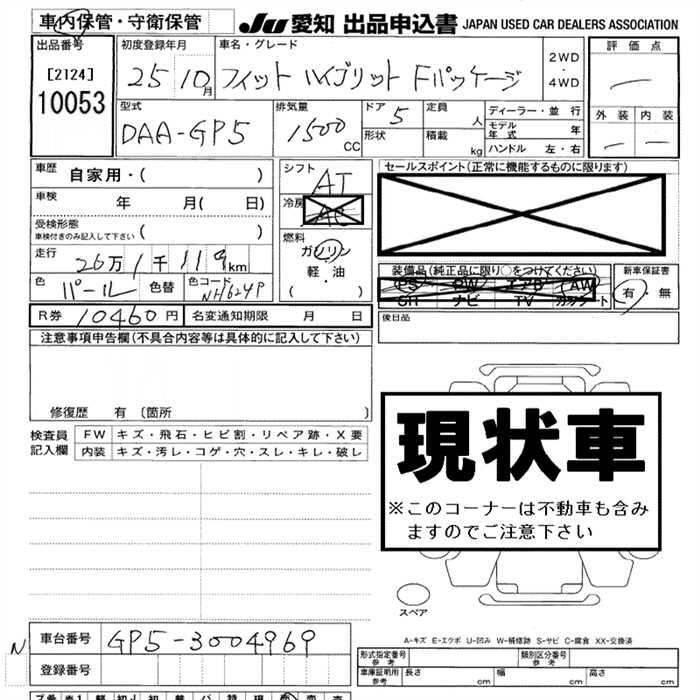 車内保管・守衛保管 JU 愛知 出品申込書 JAPAN USED CAR DEALERS ASSOCIATION
出品番号 初度登録年月 車名・グレード 2WD 評価点
[2124] 25 10月 フィット ハイブリット Fパッケージ ・
10053 4WD
型式 排気量 ドア 5 定員 人 ディーラー・並行 外装 内装
DAA-GP5 1500 CC 形状 積載 kg モデル年式 年
ハンドル 左・右
車歴 自家用・( ) シフト AT セールスポイント(正常に機能するものに限ります)
車検 年 月( 日) 冷房 AC
受検形態 ( ) 燃料
車検付きのみ記入して下さい ガソリン
走行 26万1千119km 軽・油 装備品(純正品に限り○をつけてください) 新車保証書
色 パール 色替 色コード NH624P ・( ) PS PW エアB AW 有・無
SH ナビ TV ガッツート
R券 10460円 名変通知期限 月 日 後日品
注意事項申告欄(不具合内容等は具体的に記入して下さい)
修復歴 有 [箇所 ]
検査員 FW キズ・飛石・ヒビ割・リペア跡・X要
記入欄 内装 キズ・汚レ・コゲ・穴・スレ・キレ・破レ
現状車
※このコーナーは不動車も含み
ますのでご注意下さい
スペア
A-キズ E-エクボ U-凹み W-補修跡 S-サビ C-腐食 XX-交換済
N 車台番号 GP5-3004969
登録番号
形式指定番号 参考 類別区分番号 参考
車庫証明用 参考 長さ cm 幅 cm 高さ cm